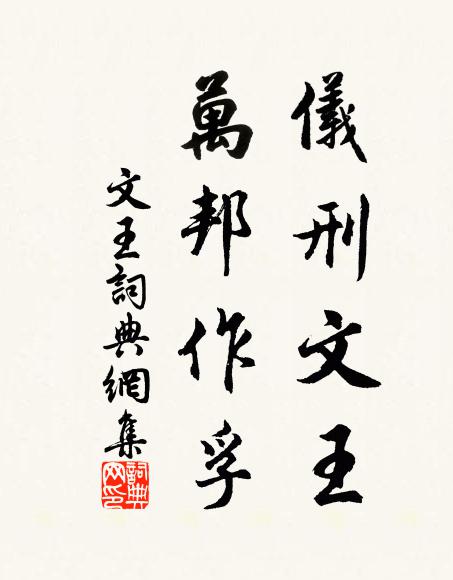 儀刑文王
萬邦作孚
文王詞典網集
詞典網印